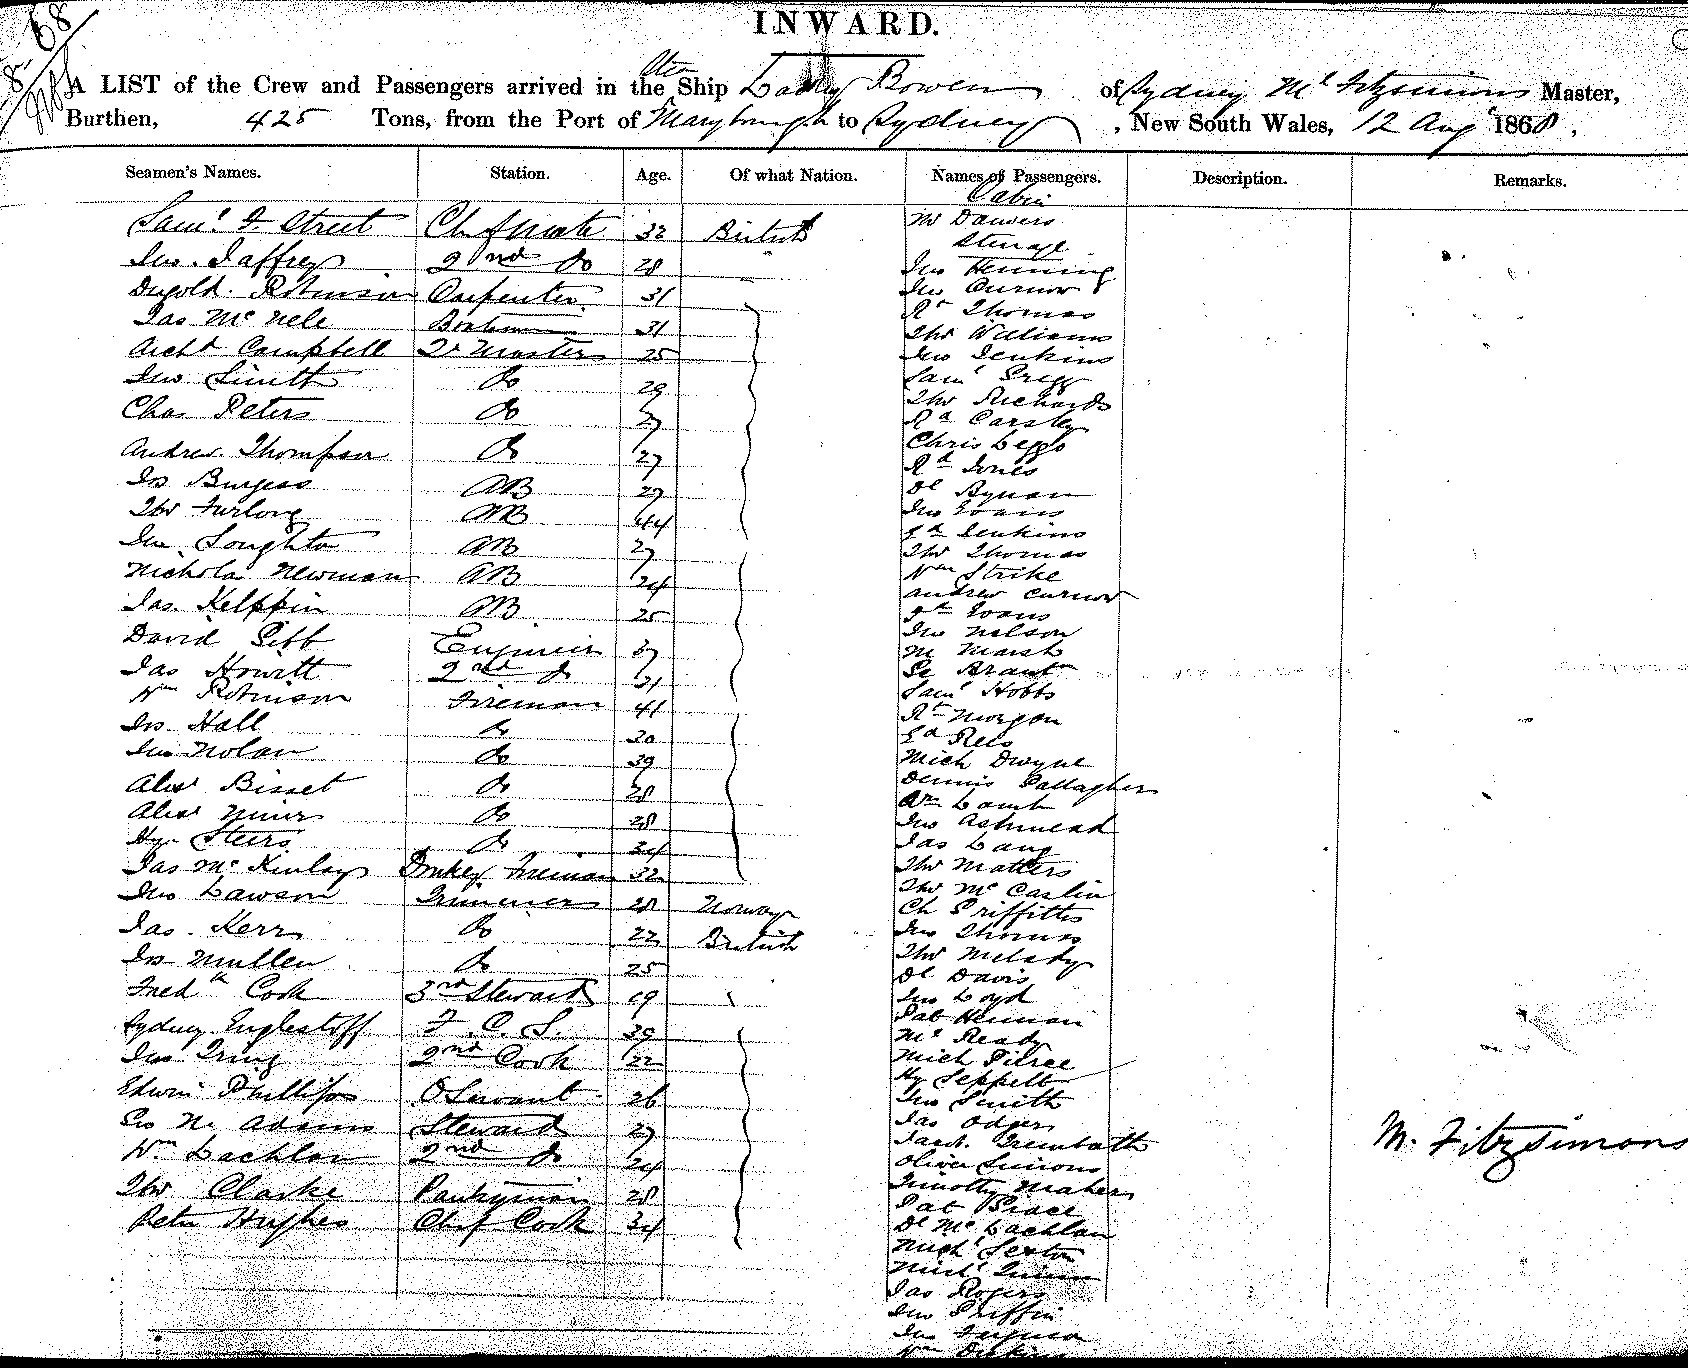 68
INWARD.
A LIST of the Crew and Passengers arrived in the Ship Lady Bowen of Sydney Mc Fitzsimons Master,
Burthen, 425 Tons, from the Port of Maryborough to Sydney, New South Wales, 12 Aug 1868.
Seamen's Names. Station. Age. Of what Nation. Names of Passengers. Description. Remarks.
Cabin
Saml F. Street Chf Mate 32 British Mr Danvers
Steerage
Jno. Jaffrey 2nd Do 28 Jno Henning
Jno Curnow
Dugold. Robinson Carpenter 31 Rt Thomas
Jas Mc Nele Boatsmn 31 Thos Williams
Archd Campbell Qr Master 25 Jno Jenkins
Jno Smith Do 29 Saml Gregg
Thos Richards
Chas Peters Do 27 Rd Carsley
Chris Leggo
Andrew Thompson Do 27 Rd Jones
Jos Burgess AB 27 Dl Bynan
Thos Furlong AB 44 Jno Evans
Jenkins
Jno Loughton AB 27 Thos Thomas
Nichola Newman AB 24 Wm Strike
Andrew Curnow
Jas. Kelppin AB 25 Evans
Jno Nelson
David Gibb Engineer 37 M Marsh
Jas Howitt 2nd Do 31 Ge Brant
Wm Robinson Fireman 41 Saml Hobbs
Jos Hall Do 30 Rt Morgan
Ed Rees
Jno Nolan Do 39 Mich Dwyne
Alexr Bisset Do 28 Dennis Gallagher
Lamb
Alexr Do 28 Jno Ashmead
Hy Steers Do 34 Jas Lang
Jas Mc Kinlay Donkey Fireman 32 Thos Matters
Jno Lawson Trimmer 28 Norway Thos Mc Caslin
Ch Griffiths
Jas. Kerr Do 22 British Jno Thomas
Thos Melady
Jos Mullen Do 25 Dl Davis
Fredk Cook 3rd Steward 19 Jno Loyd
Pat Hennan
Sydney Englestoff F. C. S. 39 Mc Ready
Jno Tring 2nd Cook 22 Mich Pilree
Hy Seppelt
Edwin Phillips O Servant 26 Jno Smith
Jas Odgers
Geo N. Adams Steward 27 Jacob. Trembath
Wm Lachlan 2nd Do 24 Oliver Simons
M. Fitzsimons
Timothy Mahers
Thos Clarke Pantryman 28 Pat Grace
Peter Hughes Chf Cook 34 Dl Mc Lachlan
Michl Sexton
Michl Quinn
Jas Rogers
Jno Griffin
Jno Ferguson
Wm